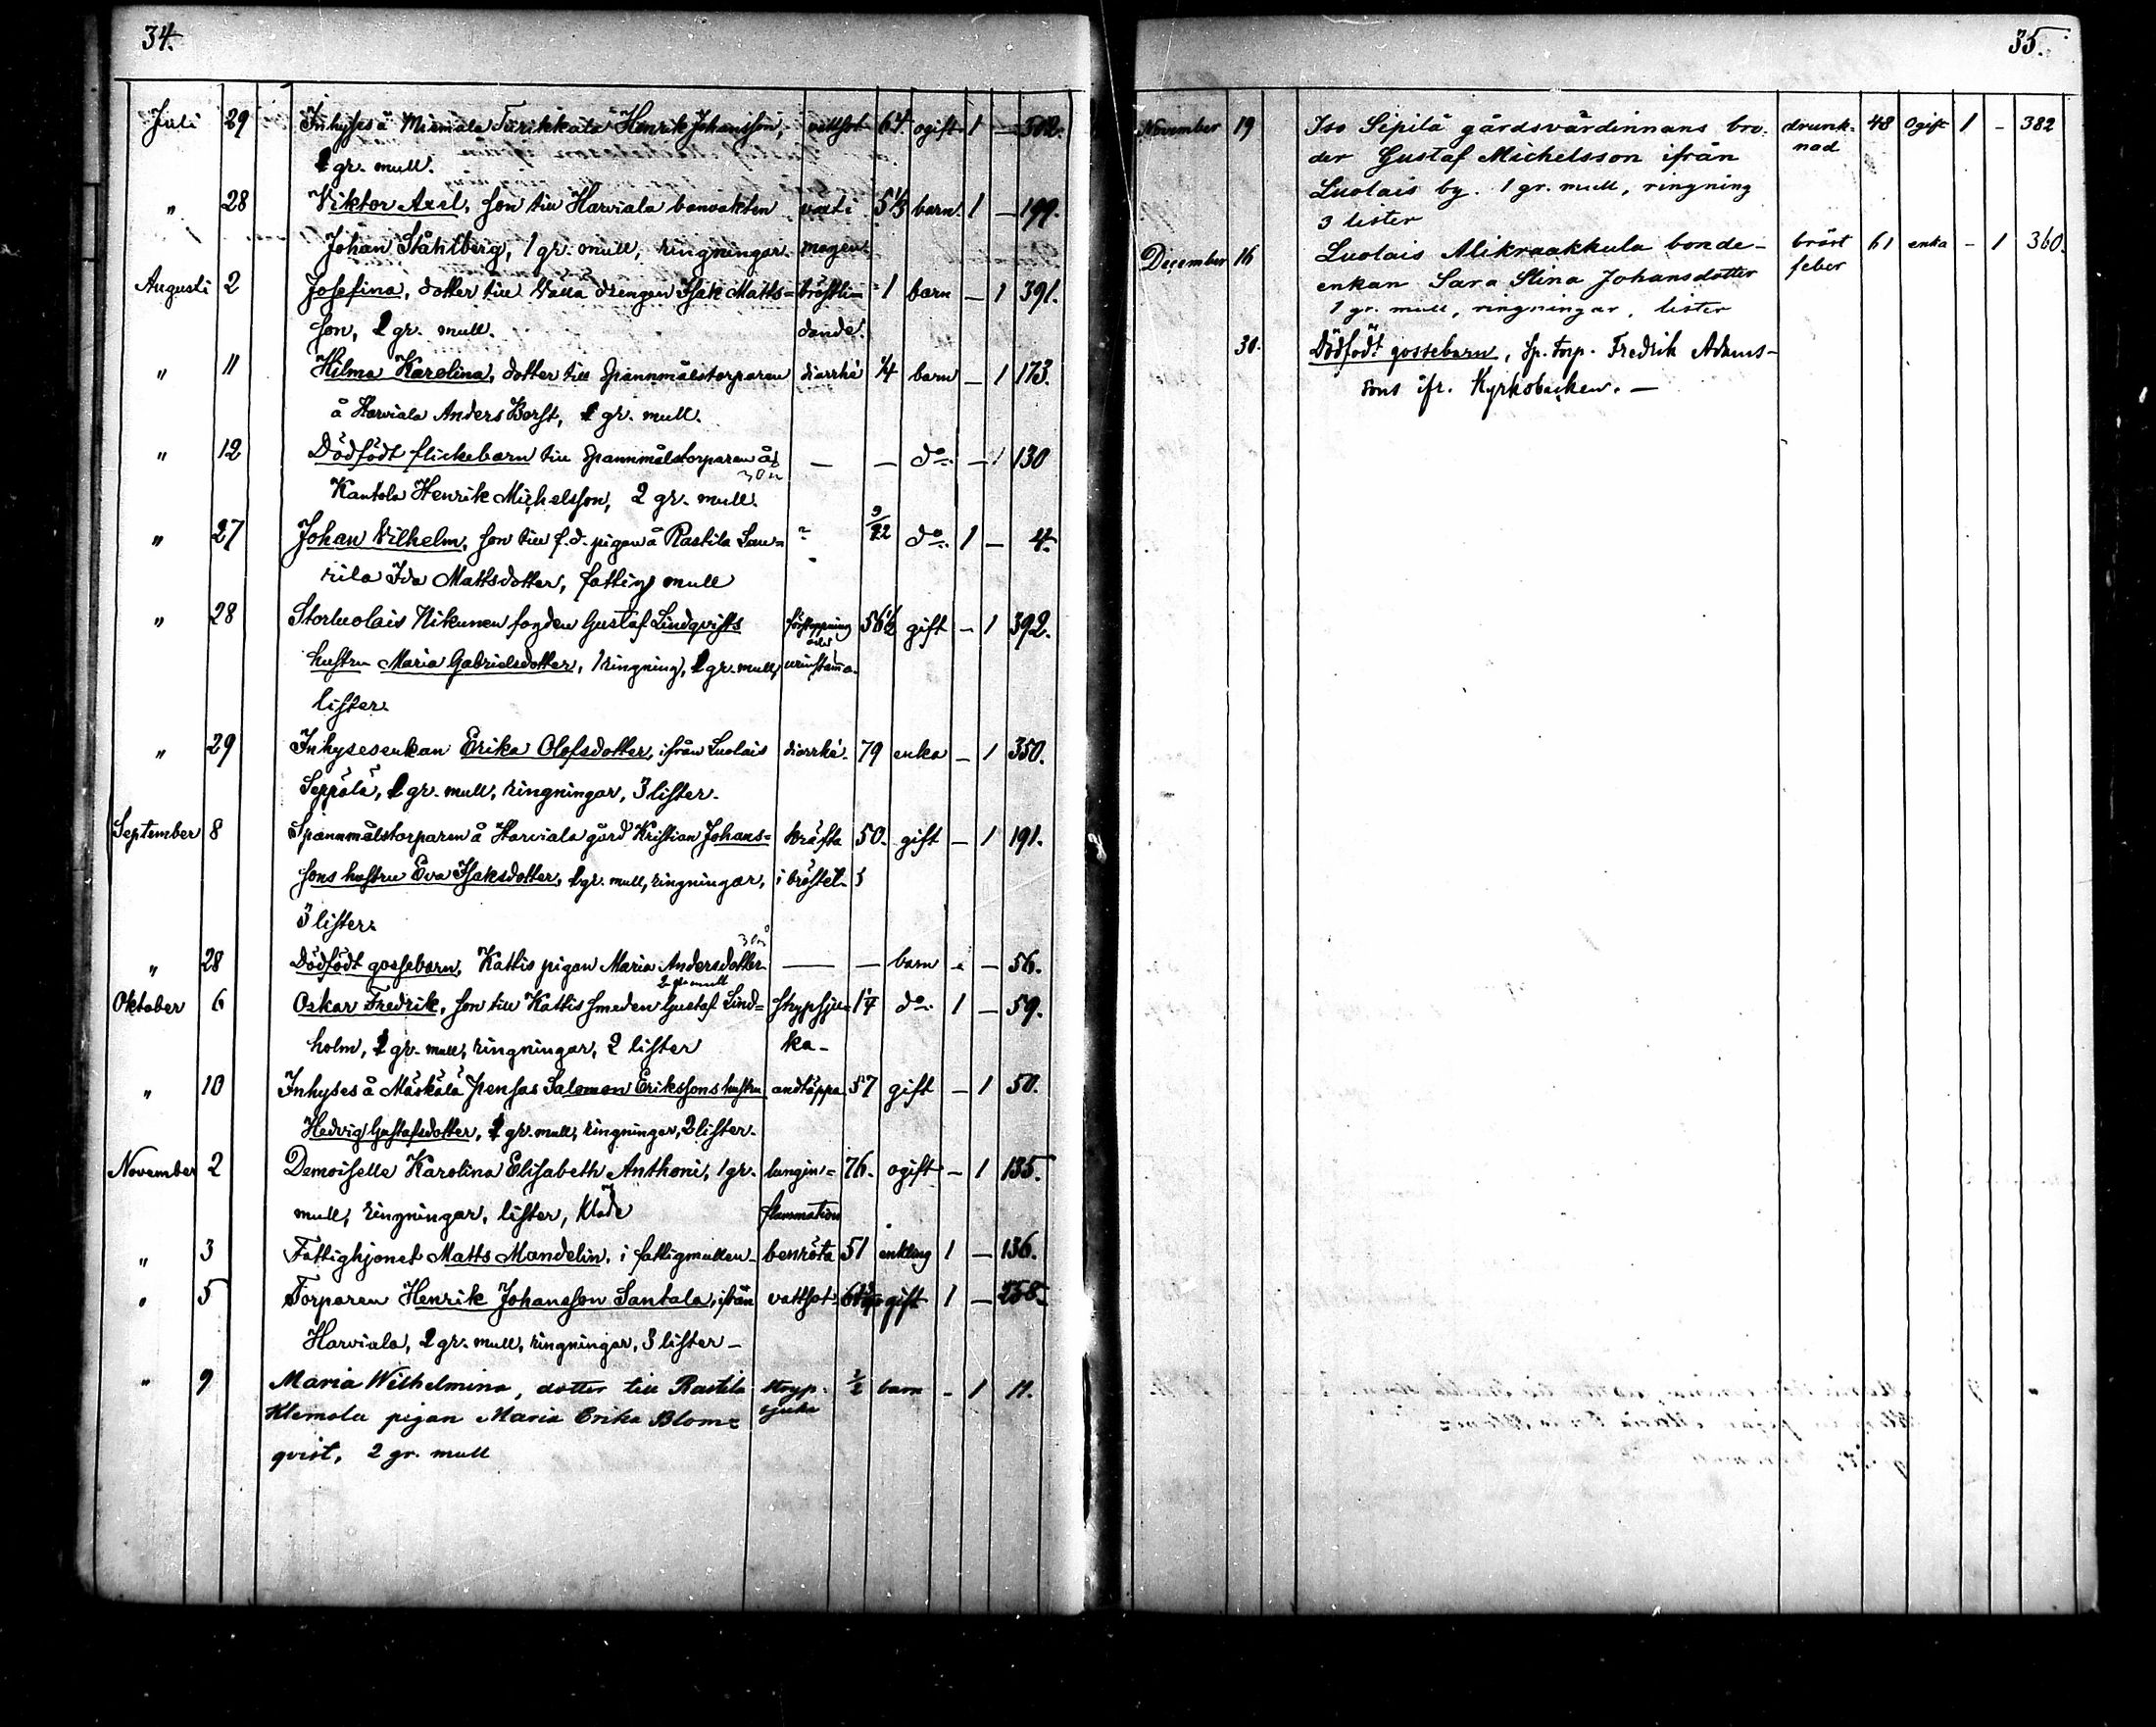 34.
Juli 29 Inhyses å Miemala Turikkala Henrik Johansson, vattsot 64 ogift 1 —
1 gr. mull.
" 28 Viktor Axel, son till Harviala banvakten 5 1/3 barn 1 — 199.
Johan Ståhlberg, 1 gr. mull, ringningar. magen
Augusti 2 Josefina, dotter till Walla drengen Isak Matts= bröstli= 1 barn — 1 391.
son, 2 gr. mull. dande
" 11 Hilma Karolina, dotter till Spannmålstorparen diarrhé 1/4 barn — 1 173.
å Harviala Anders Borst, 2 gr. mull.
" 12 Dödfödt flickebarn till Spannmålstorparen å — — do — 1 130
Kantola Henrik Michelsson, 2 gr. mull.
" 27 Johan Vilhelm, son till f.d. pigan å Rastila Lau= ? do 1 — 4.
rila Ida Mattsdotter, fattig mull
" 28 Storluolais Nikunen fogden Gustaf Lindqvists förstoppning 56 1/2 gift — 1 392.
hustru Maria Gabrielsdotter, 1 ringning, 2 gr. mull, urinstämma.
lister.
" 29 Inhysesenkan Erika Olofsdotter, ifrån Luolais diarrhé. 79 enka — 1 350.
Seppälä, 2 gr. mull, ringningar, 3 lister.
September 8 Spannmålstorparen å Harviala gård Kristian Johans= kräfta 50. gift — 1 191.
sons hustru Eva Isaksdotter, 1 gr. mull, ringningar, i bröstet
3 lister.
" 28 Dödfödt gossebarn, Kattis pigan Maria Andersdotter — — barn — 56.
2 gr. mull
Oktober 6 Oskar Fredrik, son till Kattis smeden Gustaf Lind= strypsju= 1 1/4 do 1 — 59.
holm, 2 gr. mull, ringningar, 2 lister ka
" 10 Inhyses å Mäskälä Pensas Salomon Erikssons hustru andtäppa 57 gift — 1 50.
Hedvig Gustafsdotter, 2 gr. mull, ringningar, 2 lister.
November 2 Demoiselle Karolina Elisabeth Anthoni, 1 gr. lungin= 76. ogift — 1 135.
mull, ringningar, lister, kläde flammation
" 3 Fattighjonet Matts Mandelin, i fattigmullen benröta 51 enkling 1 — 136.
" 5 Torparen Henrik Johansson Santala, ifrån vattsot gift 1 — 258.
Harviala, 2 gr. mull, ringningar, 3 lister
" 9 Maria Wilhelmina, dotter till Rastila stryp- 1/2 barn — 1 11.
Klemola pigan Maria Erika Blom= sjuka
qvist, 2 gr. mull
35.
November 19 Iso Sipilä gårdsvärdinnans bro- drunk- 48 Ogift 1 — 382
der Gustaf Michelsson ifrån nad
Luolais by. 1 gr. mull, ringning
3 lister
December 16 Luolais Alikraakkula bonde- bröst 61 enka — 1 360.
enkan Sara Stina Johansdotter feber
1 gr. mull, ringningar, lister
30. Dödfödt gossebarn, Sp. torp. Fredrik Adams-
sons ifr. Kyrkobacken. —